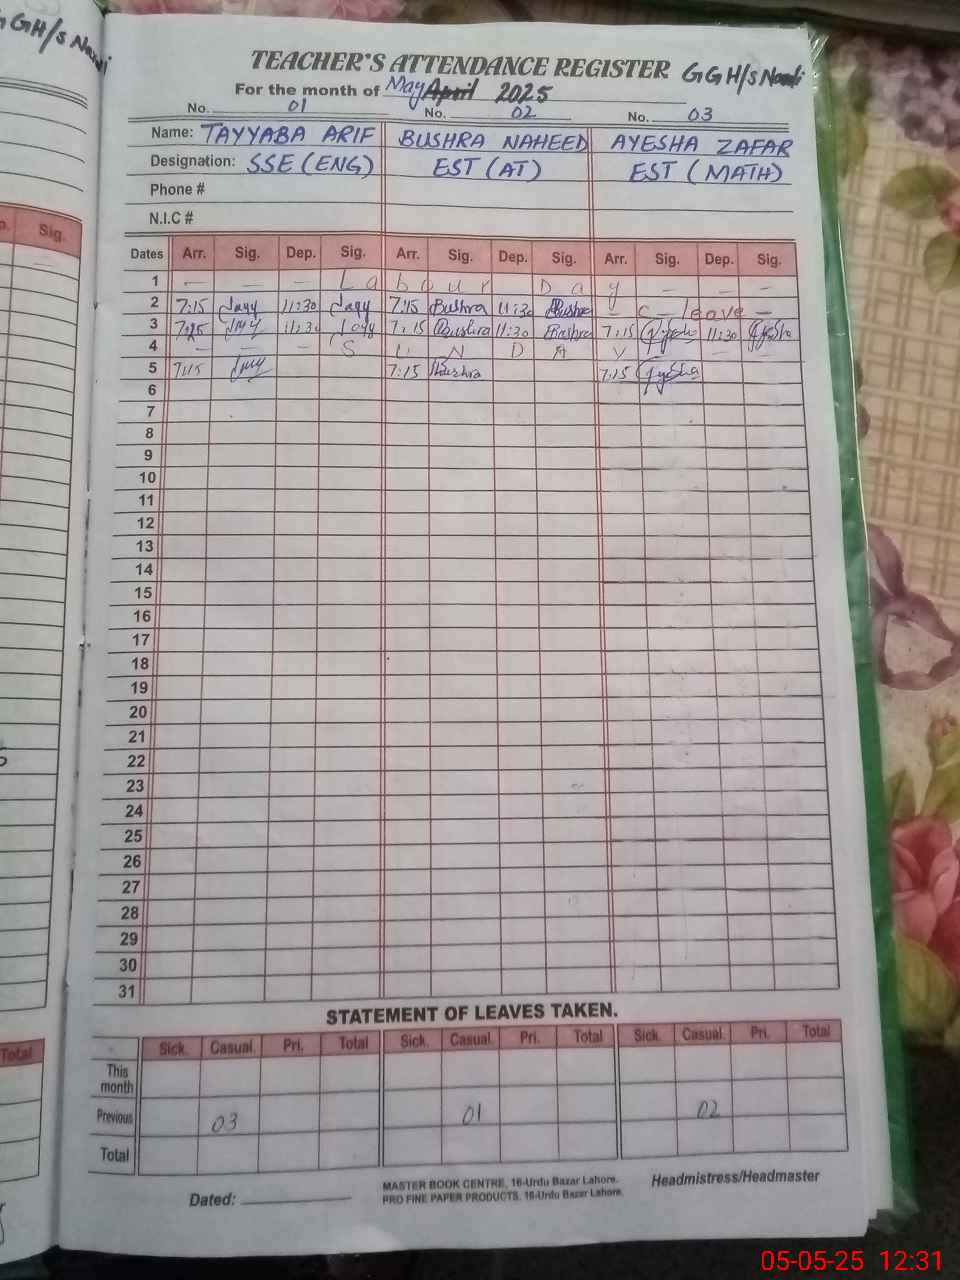 GGH/s Nandi
TEACHER'S ATTENDANCE REGISTER GGH/s Nandi
For the month of May April 2025
No. 01 No. 02 No. 03
Name: TAYYABA ARIF BUSHRA NAHEED AYESHA ZAFAR
Designation: SSE (ENG) EST (AT) EST (MATH)
Phone #
N.I.C #
Dates Arr. Sig. Dep. Sig. Arr. Sig. Dep. Sig. Arr. Sig. Dep. Sig.
1 — — — Labour Day — — —
2 7:15 Tayy 11:30 Tayy 7:15 Bushra 11:30 Bushra — C leave —
3 7:25 Tayy 11:30 Tayy 7:15 Bushra 11:30 Bushra 7:15 Ayesha 11:30 Ayesha
4 — — — SUNDAY — — —
5 7:15 Tayy 7:15 Bushra 7:15 Ayesha
6
7
8
9
10
11
12
13
14
15
16
17
18
19
20
21
22
23
24
25
26
27
28
29
30
31
STATEMENT OF LEAVES TAKEN.
Sick. Casual. Pri. Total Sick. Casual. Pri. Total Sick. Casual. Pri. Total
This month
Previous 03 01 02
Total
Dated:
MASTER BOOK CENTRE, 16-Urdu Bazar Lahore.
PRO FINE PAPER PRODUCTS. 16-Urdu Bazar Lahore.
Headmistress/Headmaster
Sig.
Total
05-05-25 12:31